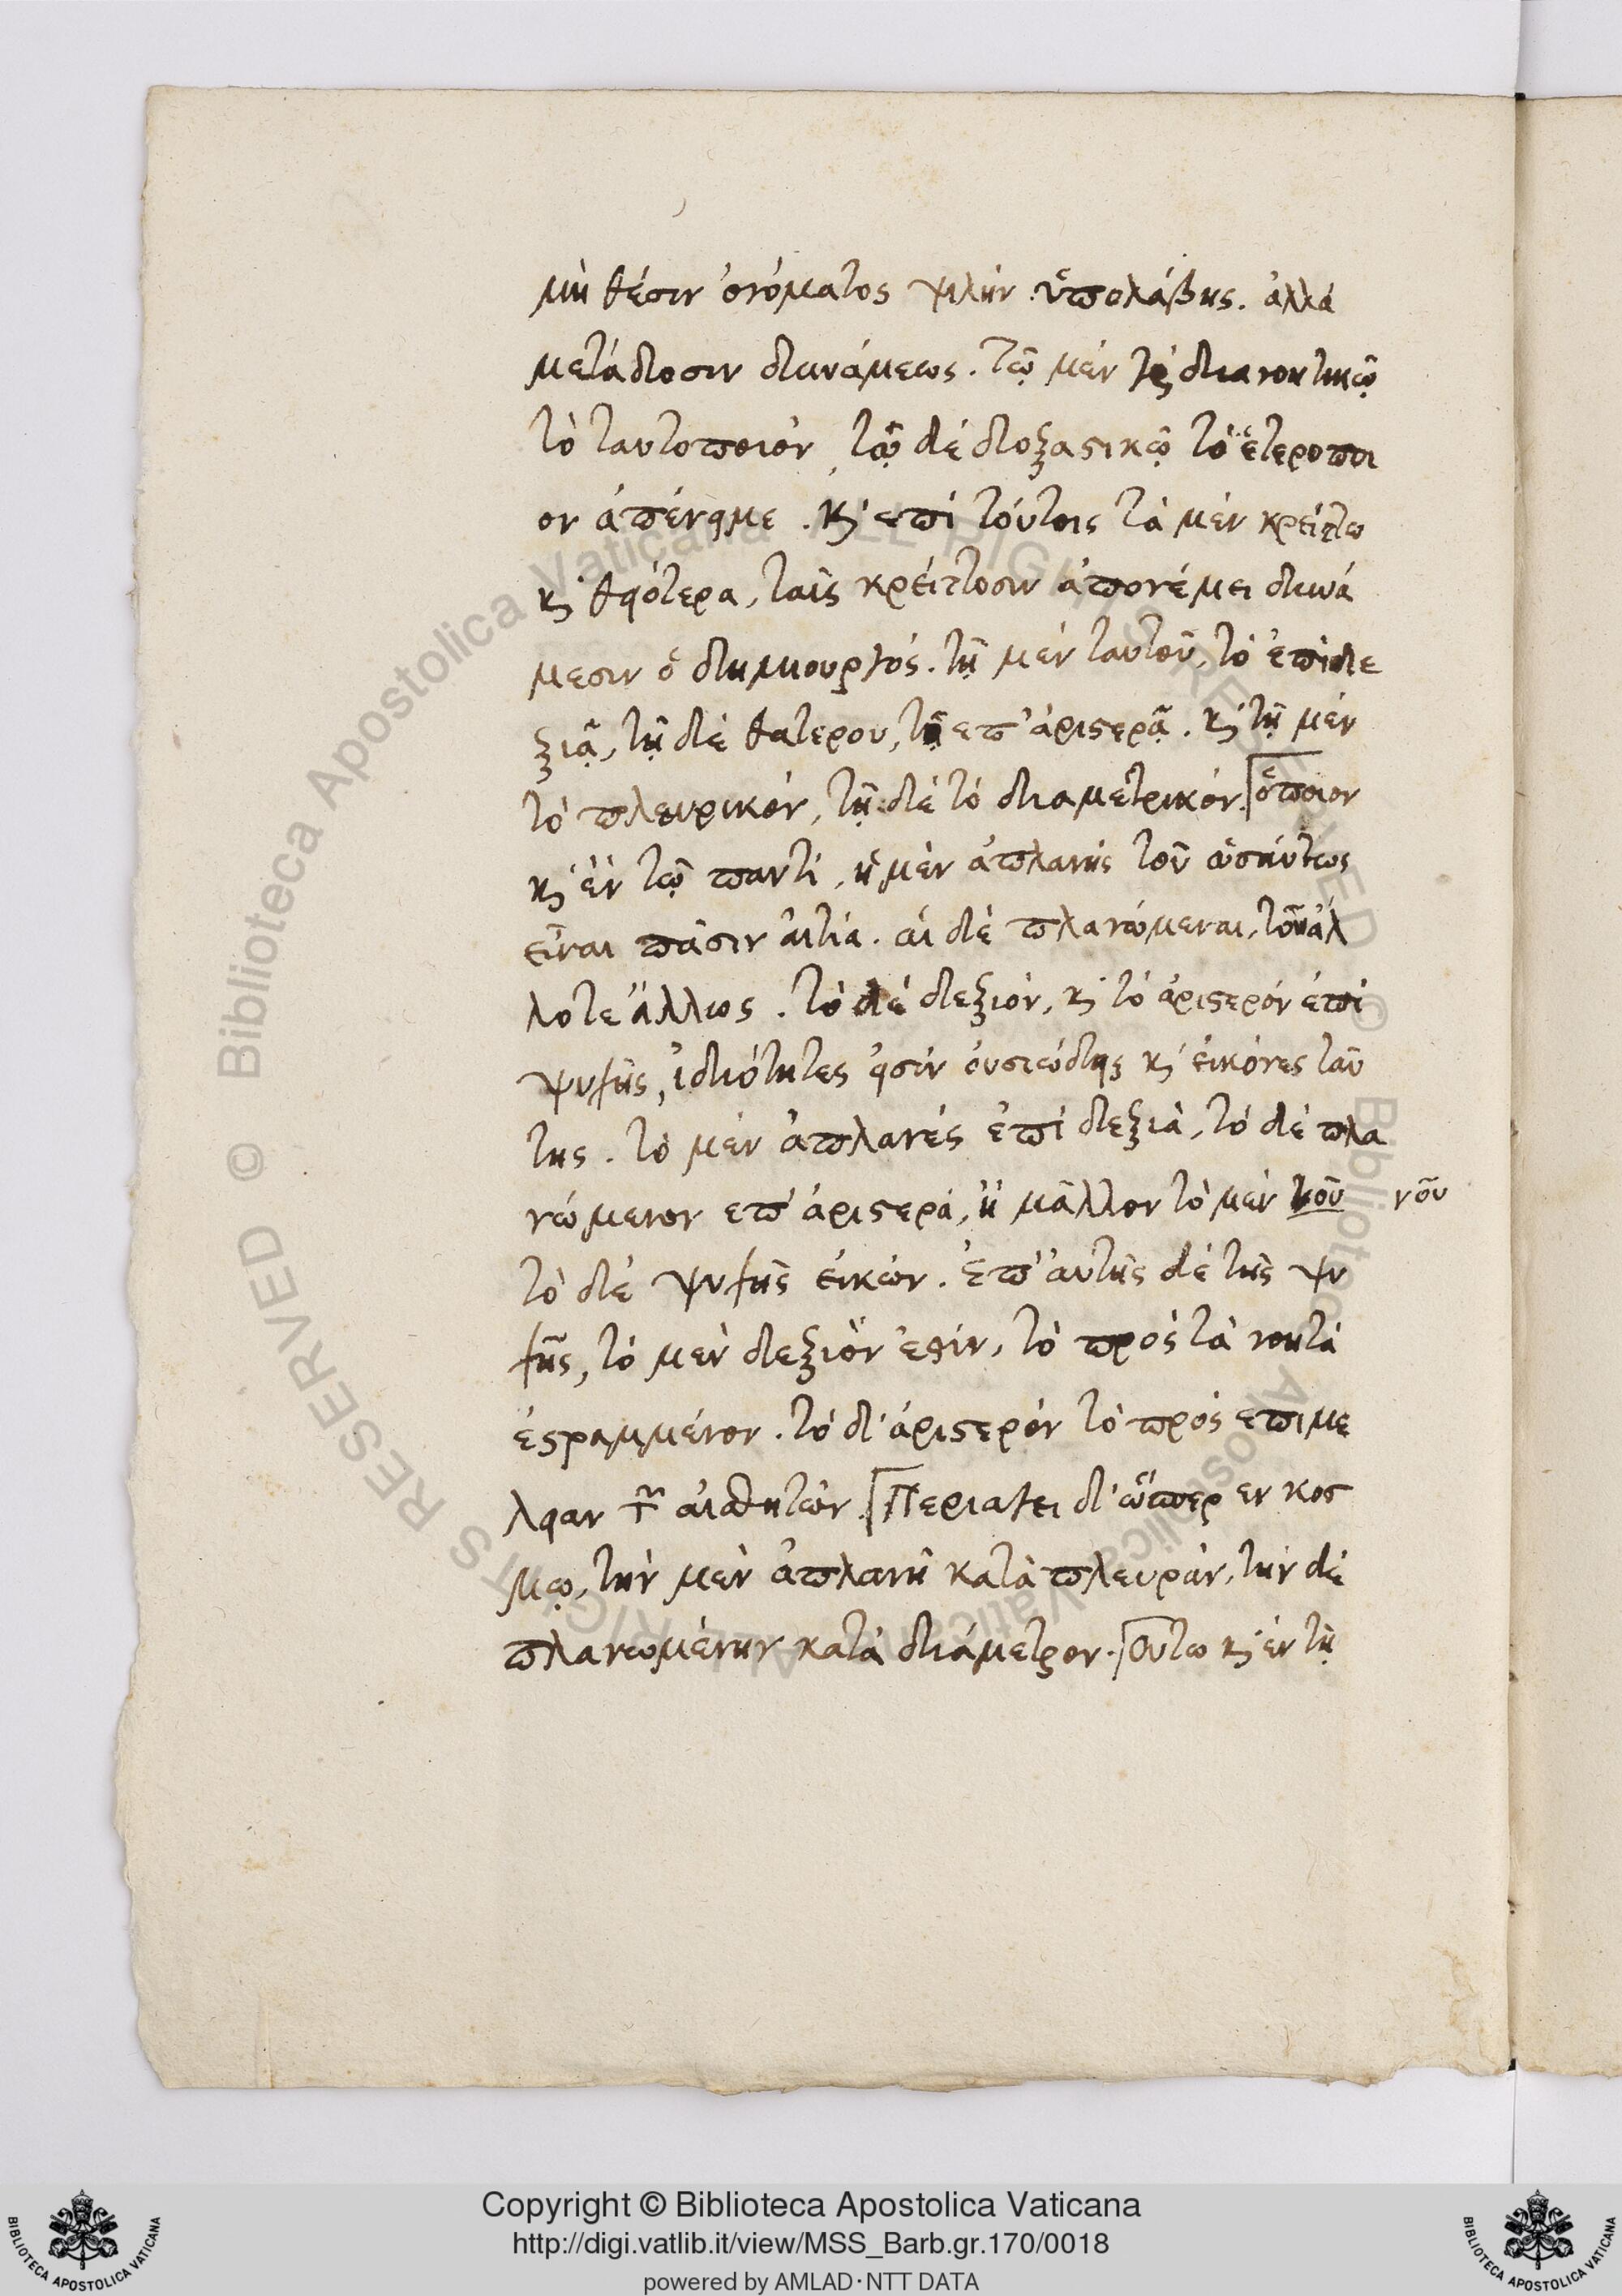 μὴ θέσιν ὀνόματος ψιλὴν ὑπολάβῃς. ἀλλὰ
μετάδοσιν δυνάμεως. τῷ μὲν γὰρ διανοητικῷ
τὸ ταυτοποιὸν, τῷ δὲ δοξαστικῷ τὸ ἑτεροποι
ὸν ἀπένειμε. καὶ ἐπὶ τούτοις τὰ μὲν κρείττω
καὶ θειότερα, ταῖς κρείττοσιν ἀπονέμει δυνά
μεσιν ὁ δημιουργός. τῇ μὲν ταυτοῦ, τὸ ἐπιδε
ξιᾷ, τῇ δὲ θατέρου, τῇ ἐπ' ἀριστερᾷ. καὶ τῇ μὲν
τὸ πλευρικὸν, τῇ δὲ τὸ διαμετρικόν. ὁποῖον
καὶ ἐν τῷ παντί, ἡ μὲν ἀπλανὴς τοῦ ὡσαύτως
εἶναι πᾶσιν αἰτία. αἱ δὲ πλανώμεναι, τοῦ ἀλ
λοτε ἄλλως. τὸ δὲ δεξιὸν, καὶ τὸ ἀριστερὸν ἐπὶ
ψυχῆς, ἰδιότητες εἰσὶν οὐσιώδεις καὶ εἰκόνες ταύ
της. τὸ μὲν ἀπλανὲς ἐπὶ δεξιὰ, τὸ δὲ πλα
νώμενον ἐπ' ἀριστερά, ἢ μᾶλλον τὸ μὲν νοῦ νοῦ
τὸ δὲ ψυχῆς εἰκών. ἐπ' αὐτῆς δὲ τῆς ψυ
χῆς, τὸ μὲν δεξιὸν ἐστὶν, τὸ πρὸς τὰ νοητὰ
ἐστραμμένον. τὸ δ' ἀριστερὸν τὸ πρὸς ἐπιμέ
λειαν τῶν αἰσθητῶν. Περιάγει δ' ὥσπερ ἐν κόσ
μῳ, τὴν μὲν ἀπλανῆ κατὰ πλευρὰν, τὴν δὲ
πλανωμένην κατὰ διάμετρον. Οὕτω καὶ ἐν τῇ
Copyright © Biblioteca Apostolica Vaticana
http://digi.vatlib.it/view/MSS_Barb.gr.170/0018
powered by AMLAD·NTT DATA